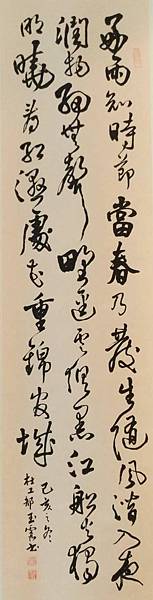 好雨知時節當春乃發生隨風潛入夜
潤物細無聲野徑雲俱黑江船火獨
明曉看紅濕處花重錦官城
乙亥之冬
杜工部玉書